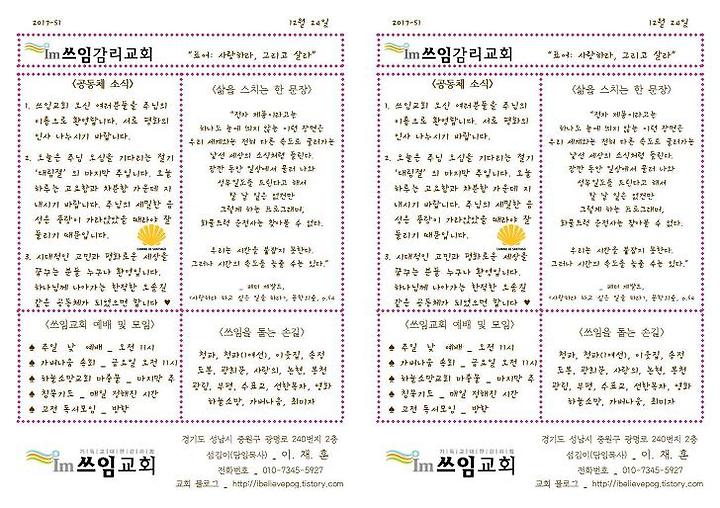 2017-51
12월 24일
Im쓰임감리교회
“표어: 사랑하라, 그리고 살라”
<공동체 소식>
1. 쓰임교회 오신 여러분들을 주님의
이름으로 환영합니다. 서로 평화의
인사 나누시기 바랍니다.
2. 오늘은 주님 오심을 기다리는 절기
'대림절' 의 마지막 주일입니다. 오늘
하루는 고요함과 차분함 가운데 지
내시기 바랍니다. 주님의 세밀한 음
성은 풍랑이 가라앉았을 때라야 잘
들리기 때문입니다.
3. 시대적인 고민과 평화로운 세상을
꿈꾸는 분들 누구나 환영입니다.
하나님께 나아가는 한적한 오솔길
같은 공동체가 되었으면 합니다 ♥
<삶을 스치는 한 문장>
“전자 제품이라고는
하나도 눈에 띄지 않는 이런 장면은
우리 세계와는 전혀 다른 속도로 흘러가는
낯선 세상의 소식처럼 들린다.
잠깐 동안 일상에서 물러 나와
성무일도를 드린다고 해서
잘 날 일은 없건만
그렇게 하는 프로그래머,
화물트럭 운전사는 찾아볼 수 없다.
우리는 시간을 붙잡지 못한다.
그러나 시간의 속도를 늦출 수는 있다.”
<쓰임교회 예배 및 모임>
♠ 주일 낮 예배 _ 오전 11시
♠ 가버나움 속회 _ 금요일 오전 11시
♠ 하늘소망교회 마중물 _ 마지막 주
♠ 침묵기도 _ 매일 정해진 시간
♠ 고전 독서모임 _ 방학
<쓰임을 돕는 손길>
청파, 청파(1여선), 이웃길, 송전
도봉, 광희문, 사랑의, 논현, 봉천
광림, 부평, 수표교, 선한목자, 영화
하늘소망, 가버나움, 최미자
Im쓰임교회
경기도 성남시 중원구 광명로 240번지 2층
섬김이(담임목사) _ 이 재 훈
전화번호 _ 010-7345-5927
교회 블로그 _ http://ibelievepog.tistory.com
2017-51
12월 24일
Im쓰임감리교회
“표어: 사랑하라, 그리고 살라”
<공동체 소식>
1. 쓰임교회 오신 여러분들을 주님의
이름으로 환영합니다. 서로 평화의
인사 나누시기 바랍니다.
2. 오늘은 주님 오심을 기다리는 절기
'대림절' 의 마지막 주일입니다. 오늘
하루는 고요함과 차분함 가운데 지
내시기 바랍니다. 주님의 세밀한 음
성은 풍랑이 가라앉았을 때라야 잘
들리기 때문입니다.
3. 시대적인 고민과 평화로운 세상을
꿈꾸는 분들 누구나 환영입니다.
하나님께 나아가는 한적한 오솔길
같은 공동체가 되었으면 합니다 ♥
<삶을 스치는 한 문장>
“전자 제품이라고는
하나도 눈에 띄지 않는 이런 장면은
우리 세계와는 전혀 다른 속도로 흘러가는
낯선 세상의 소식처럼 들린다.
잠깐 동안 일상에서 물러 나와
성무일도를 드린다고 해서
잘 날 일은 없건만
그렇게 하는 프로그래머,
화물트럭 운전사는 찾아볼 수 없다.
우리는 시간을 붙잡지 못한다.
그러나 시간의 속도를 늦출 수는 있다.”
<쓰임교회 예배 및 모임>
♠ 주일 낮 예배 _ 오전 11시
♠ 가버나움 속회 _ 금요일 오전 11시
♠ 하늘소망교회 마중물 _ 마지막 주
♠ 침묵기도 _ 매일 정해진 시간
♠ 고전 독서모임 _ 방학
<쓰임을 돕는 손길>
청파, 청파(1여선), 이웃길, 송전
도봉, 광희문, 사랑의, 논현, 봉천
광림, 부평, 수표교, 선한목자, 영화
하늘소망, 가버나움, 최미자
Im쓰임교회
경기도 성남시 중원구 광명로 240번지 2층
섬김이(담임목사) _ 이 재 훈
전화번호 _ 010-7345-5927
교회 블로그 _ http://ibelievepog.tistory.com